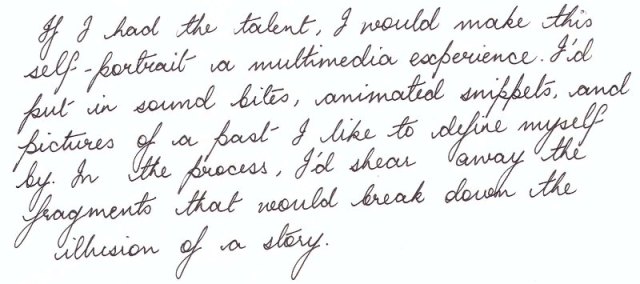 If I had the talent, I would make this
self-portrait a multimedia experience. I'd
put in sound bites, animated snippets, and
pictures of a past I like to define myself
by. In the process, I'd shear away the
fragments that would break down the
illusion of a story.